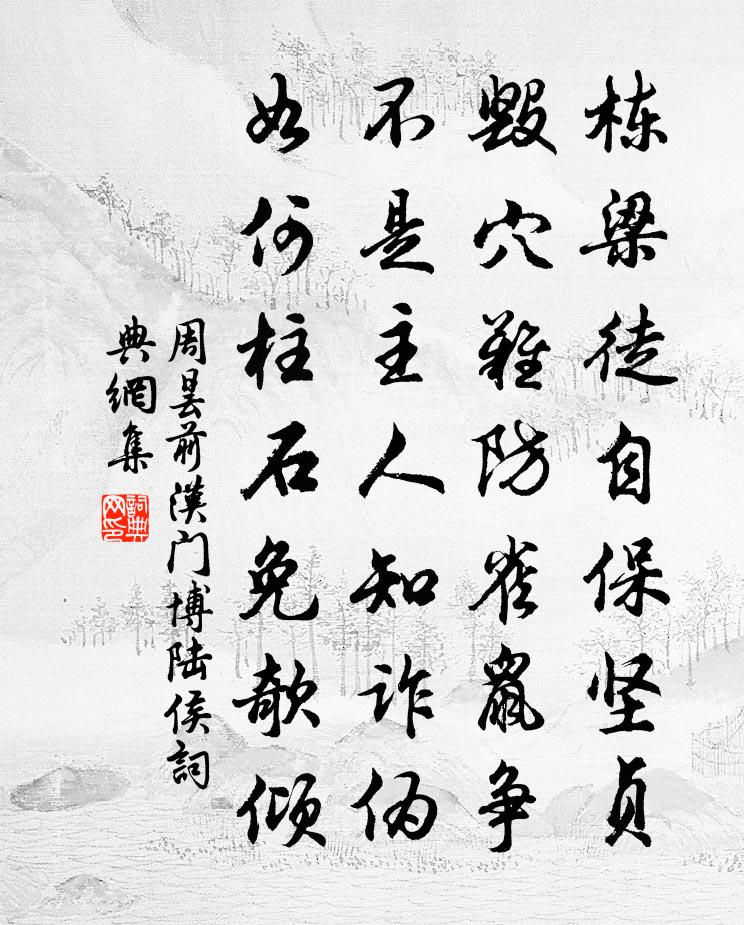 栋梁徒自保坚贞
毁穴难防雀鼠争
不是主人知诈伪
如何柱石免欹倾
周昙前漢门博陆侯詞
典網集
詞典网印